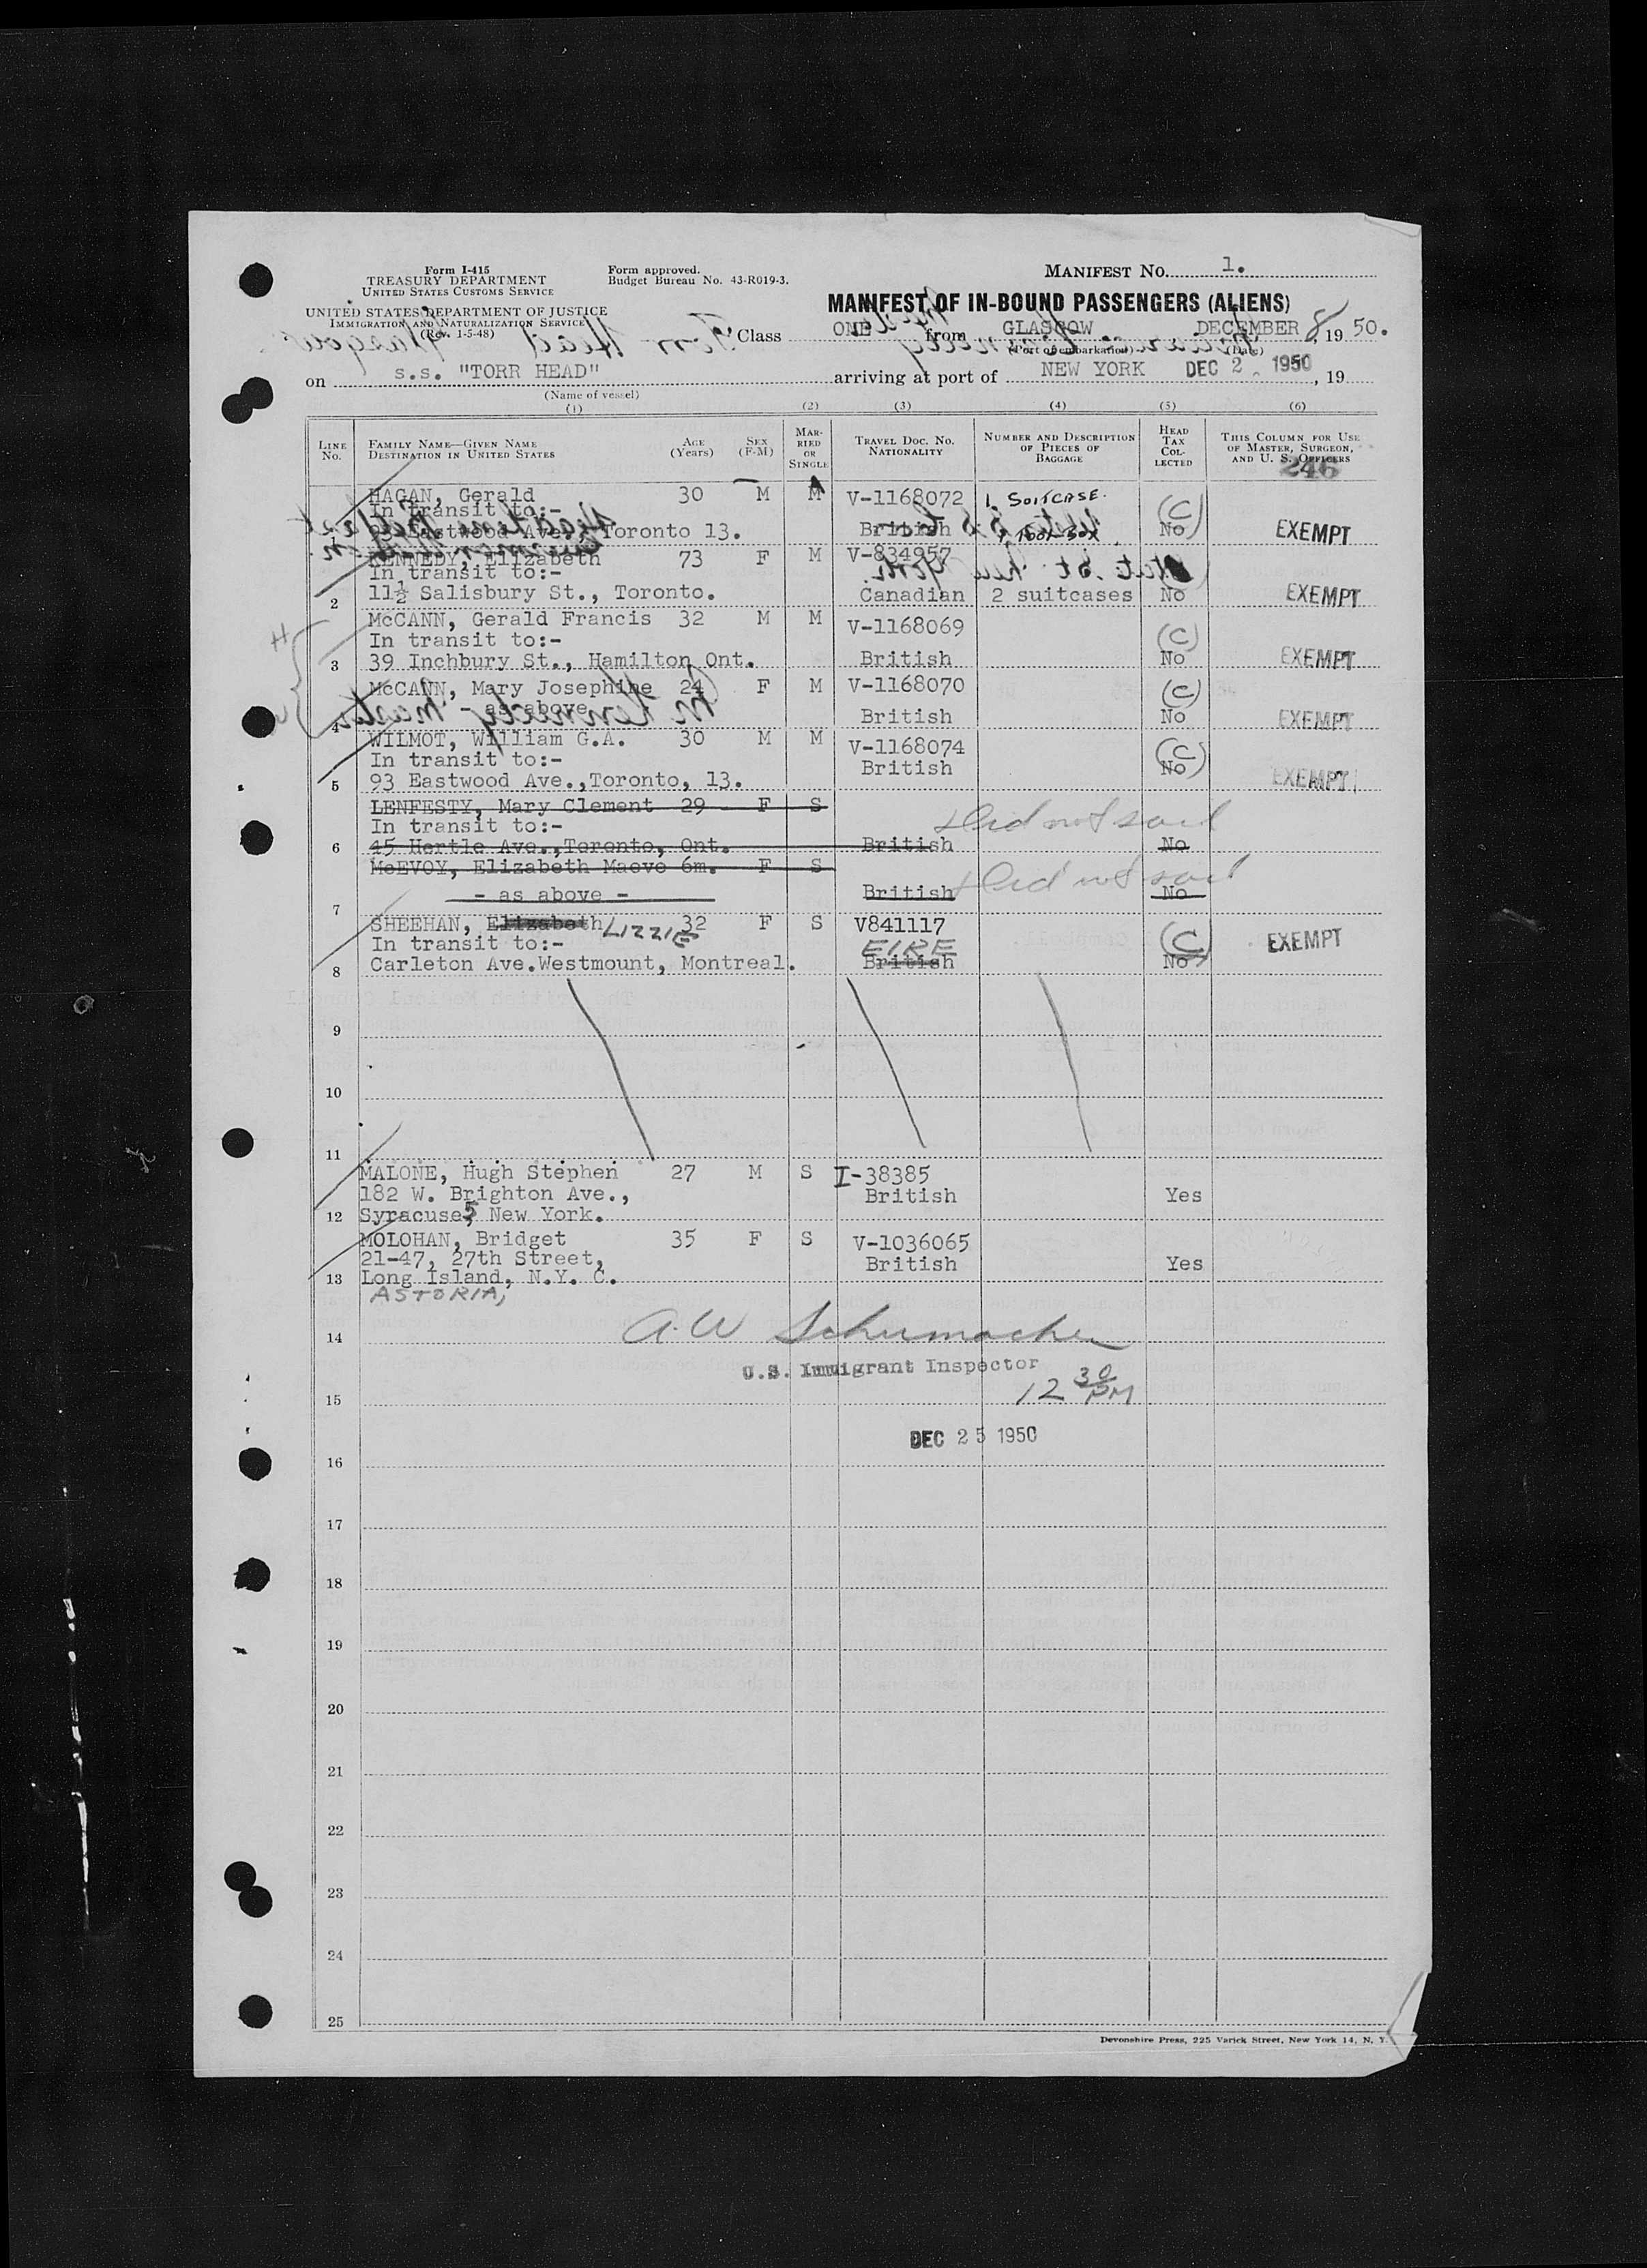 Form I-415
TREASURY DEPARTMENT
UNITED STATES CUSTOMS SERVICE
UNITED STATES DEPARTMENT OF JUSTICE
IMMIGRATION AND NATURALIZATION SERVICE
(Rev. 1-5-48)
Form approved.
Budget Bureau No. 43-R019-3.
MANIFEST No. 1.
MANIFEST OF IN-BOUND PASSENGERS (ALIENS)
Class ONE from GLASGOW DECEMBER 8, 1950.
(Port of embarkation) (Date)
on s.s. "TORR HEAD" arriving at port of NEW YORK DEC 2 1950, 19
(Name of vessel)
(1) (2) (3) (4) (5) (6)
LINE No. FAMILY NAME—GIVEN NAME DESTINATION IN UNITED STATES AGE (Years) SEX (F-M) MARRIED OR SINGLE TRAVEL DOC. NO. NATIONALITY NUMBER AND DESCRIPTION OF PIECES OF BAGGAGE HEAD TAX COLLECTED THIS COLUMN FOR USE OF MASTER, SURGEON, AND U. S. OFFICERS
246
HAGAN, Gerald 30 M M V-1168072 1 SUITCASE.
In transit to:- (C)
1 93 Eastwood Ave., Toronto 13. British 1 TOOL BOX No EXEMPT
KENNEDY, Elizabeth 73 F M V-834957
In transit to:-
2 11½ Salisbury St., Toronto. Canadian 2 suitcases No EXEMPT
McCANN, Gerald Francis 32 M M V-1168069
In transit to:- (C)
3 39 Inchbury St., Hamilton Ont. British No EXEMPT
McCANN, Mary Josephine 24 F M V-1168070 (C)
4 - as above British No EXEMPT
WILMOT, William G.A. 30 M M V-1168074 (C)
In transit to:- British No
5 93 Eastwood Ave.,Toronto, 13. EXEMPT
LENFESTY, Mary Clement 29 F S
In transit to:- Did not sail
6 45 Hertle Ave.,Toronto, Ont. British No
McEVOY, Elizabeth Maeve 6m. F S Did not sail
7 - as above - British No
SHEEHAN, Elizabeth LIZZIE 32 F S V841117
In transit to:- EIRE (C) EXEMPT
8 Carleton Ave.Westmount, Montreal. British No
9
10
11
MALONE, Hugh Stephen 27 M S I-38385
182 W. Brighton Ave., British Yes
12 Syracuse,5 New York.
MOLOHAN, Bridget 35 F S V-1036065
21-47, 27th Street, British Yes
13 Long Island, N.Y. C.
ASTORIA,
14 A.W Schumacher
U.S. Immigrant Inspector
15 12 30 PM
DEC 25 1950
16
17
18
19
20
21
22
23
24
25
Devonshire Press, 225 Varick Street, New York 14, N. Y.